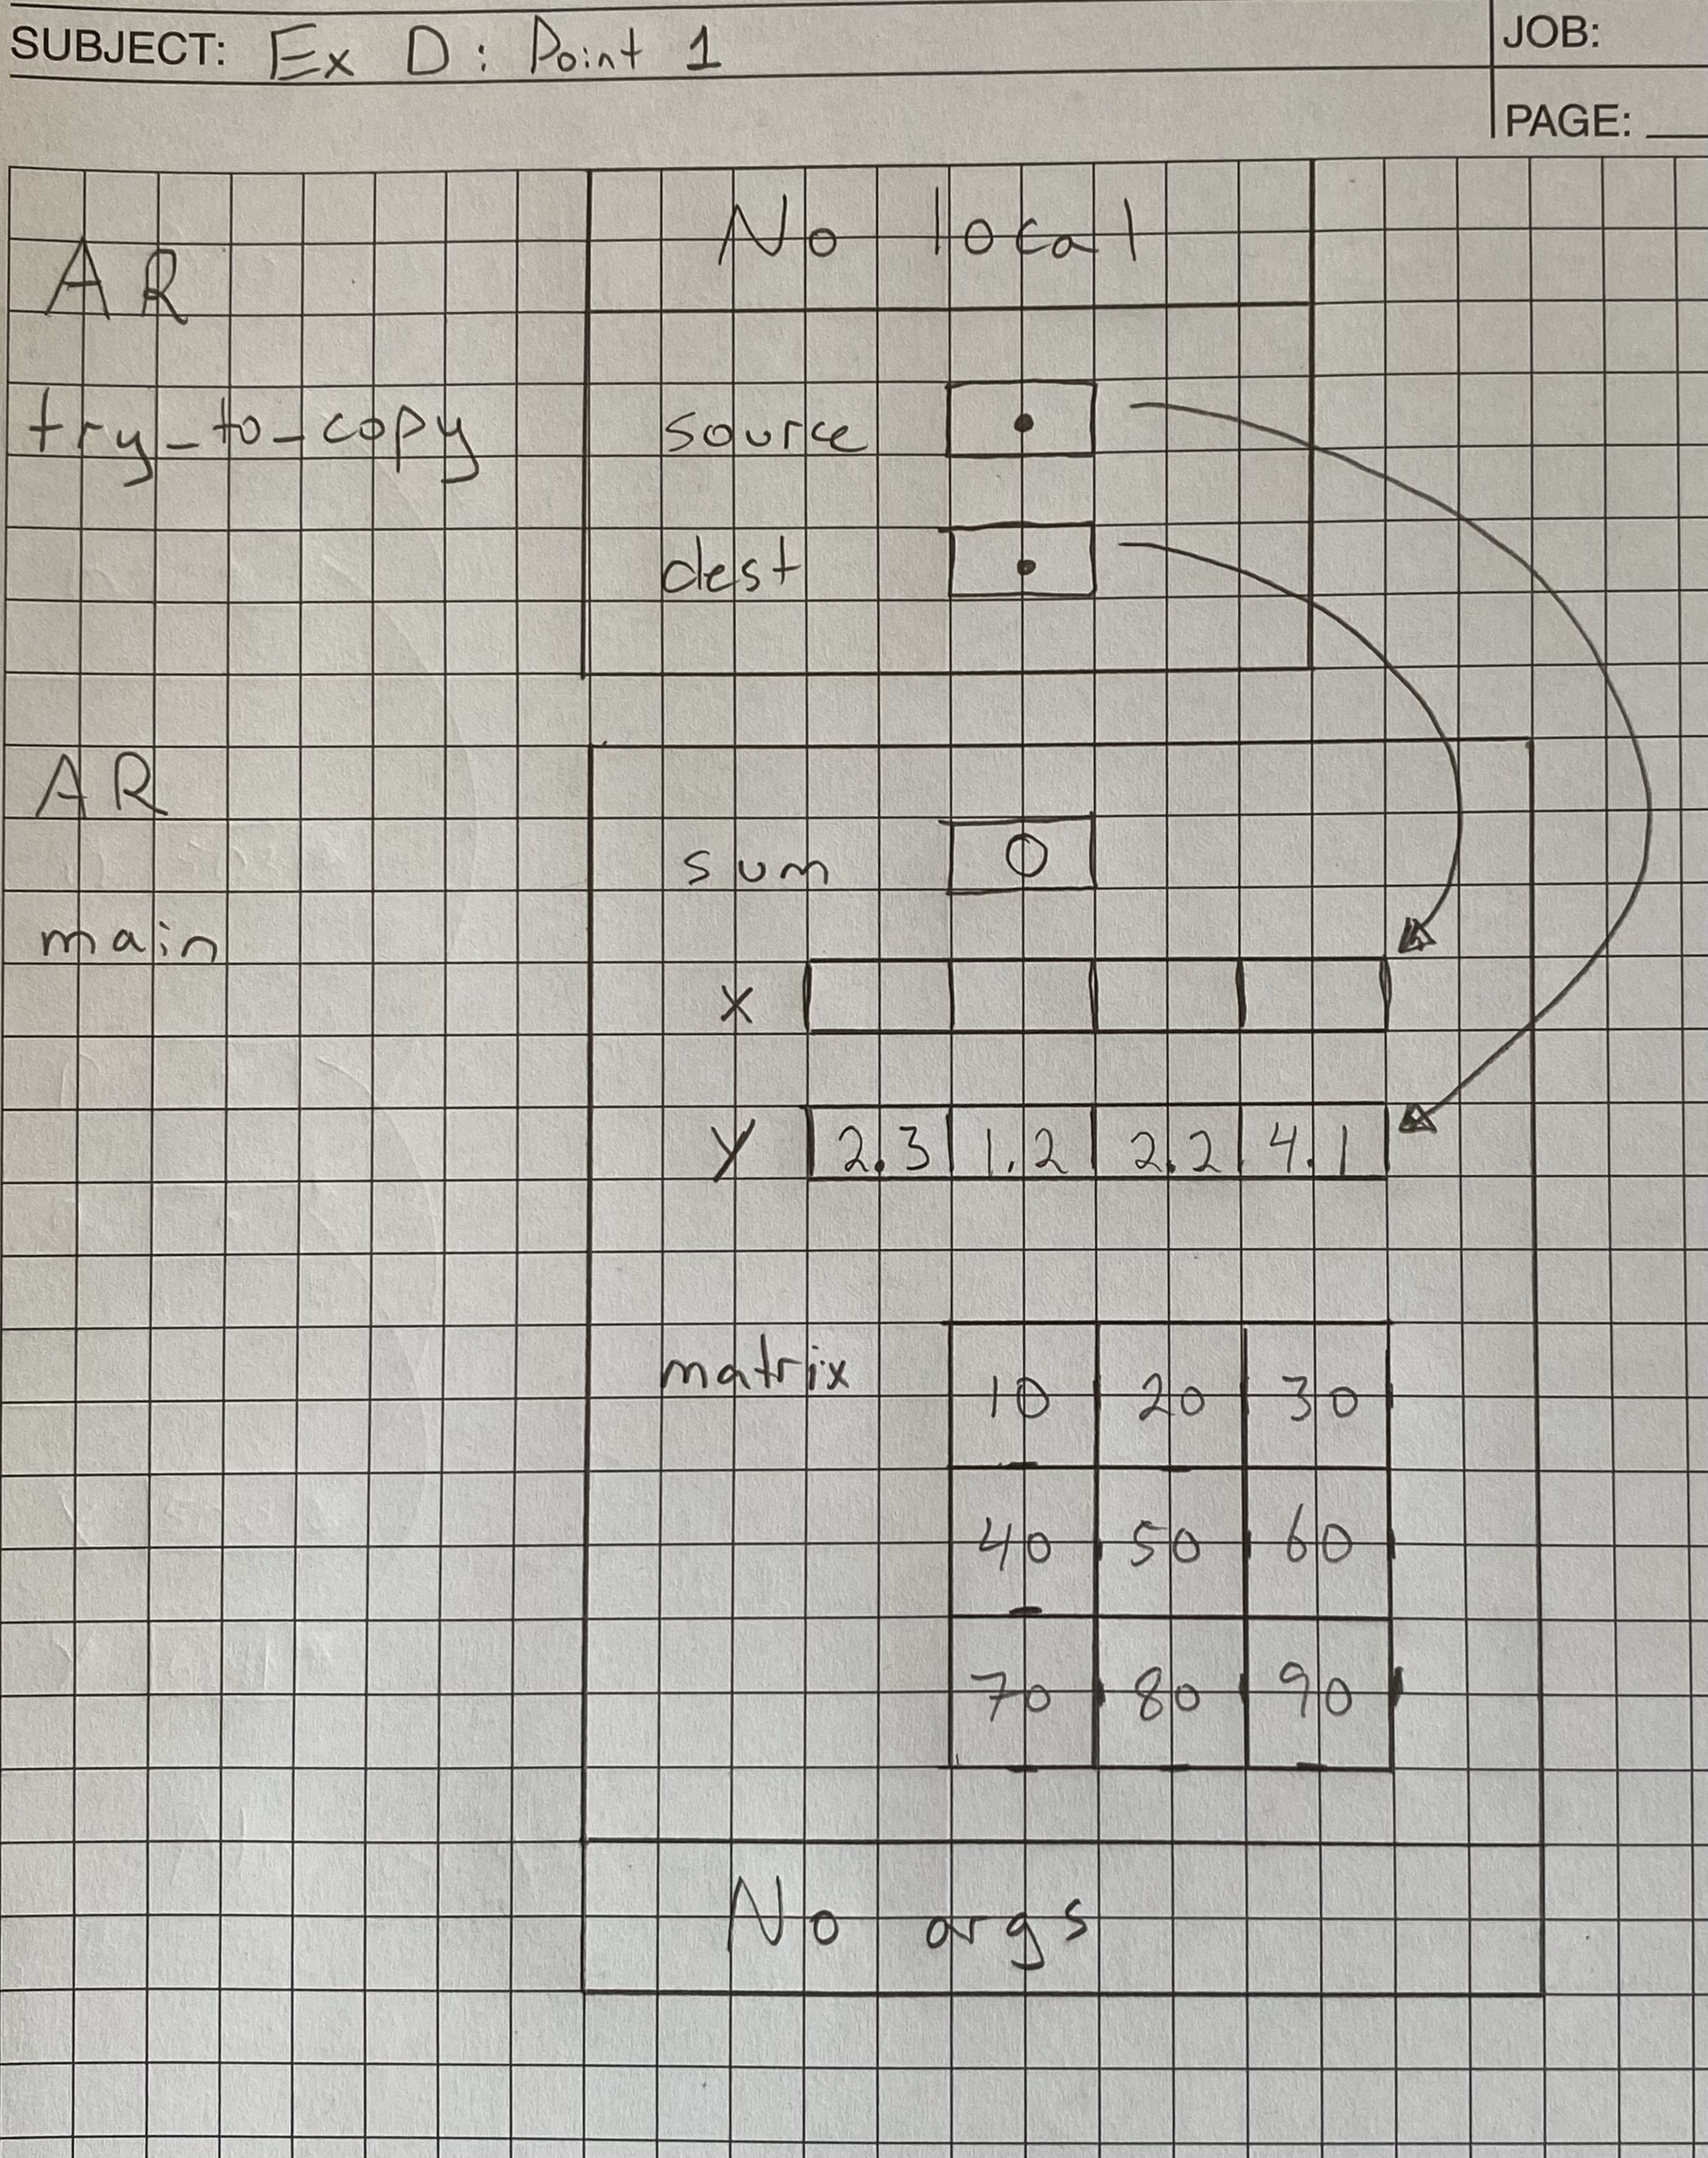 SUBJECT: Ex D: Point 1
JOB:
PAGE:
No local
AR
try_to_copy
source
dest
AR
main
sum 0
x
y 2.3 1.2 2.2 4.1
matrix 10 20 30
40 50 60
70 80 90
No args